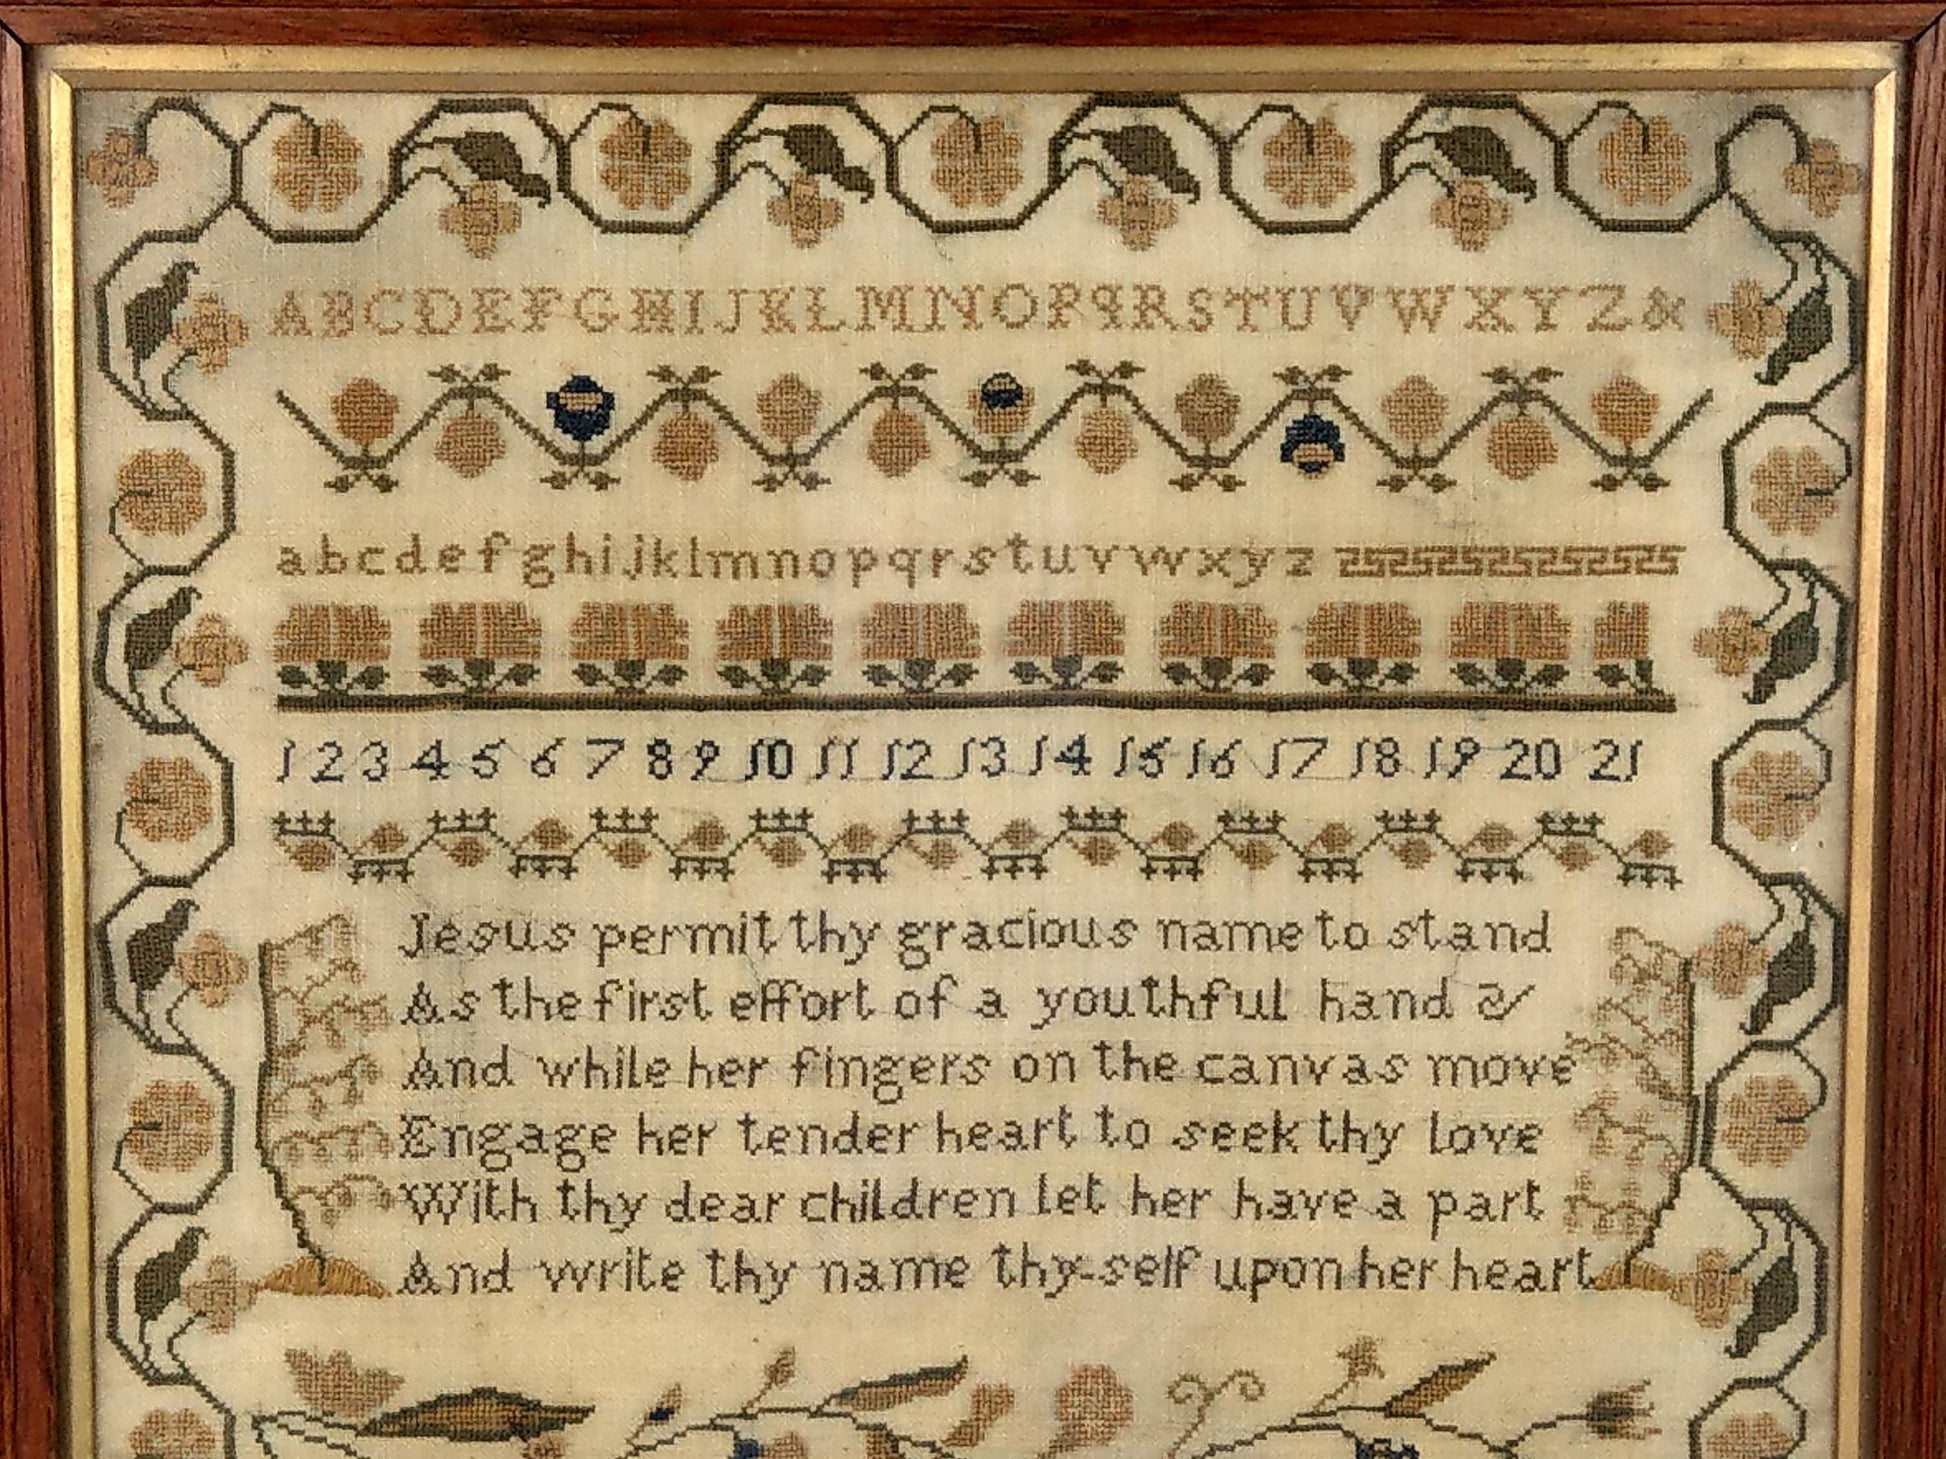 ABCDEFGHIJKLMNOPqRSTUVWXYZ&
abcdefghijklmnopqrstuvwxyz
1 2 3 4 5 6 7 8 9 10 11 12 13 14 15 16 17 18 19 20 21
Jesus permit thy gracious name to stand
As the first effort of a youthful hand &
And while her fingers on the canvas move
Engage her tender heart to seek thy love
With thy dear children let her have a part
And write thy name thy-self upon her heart